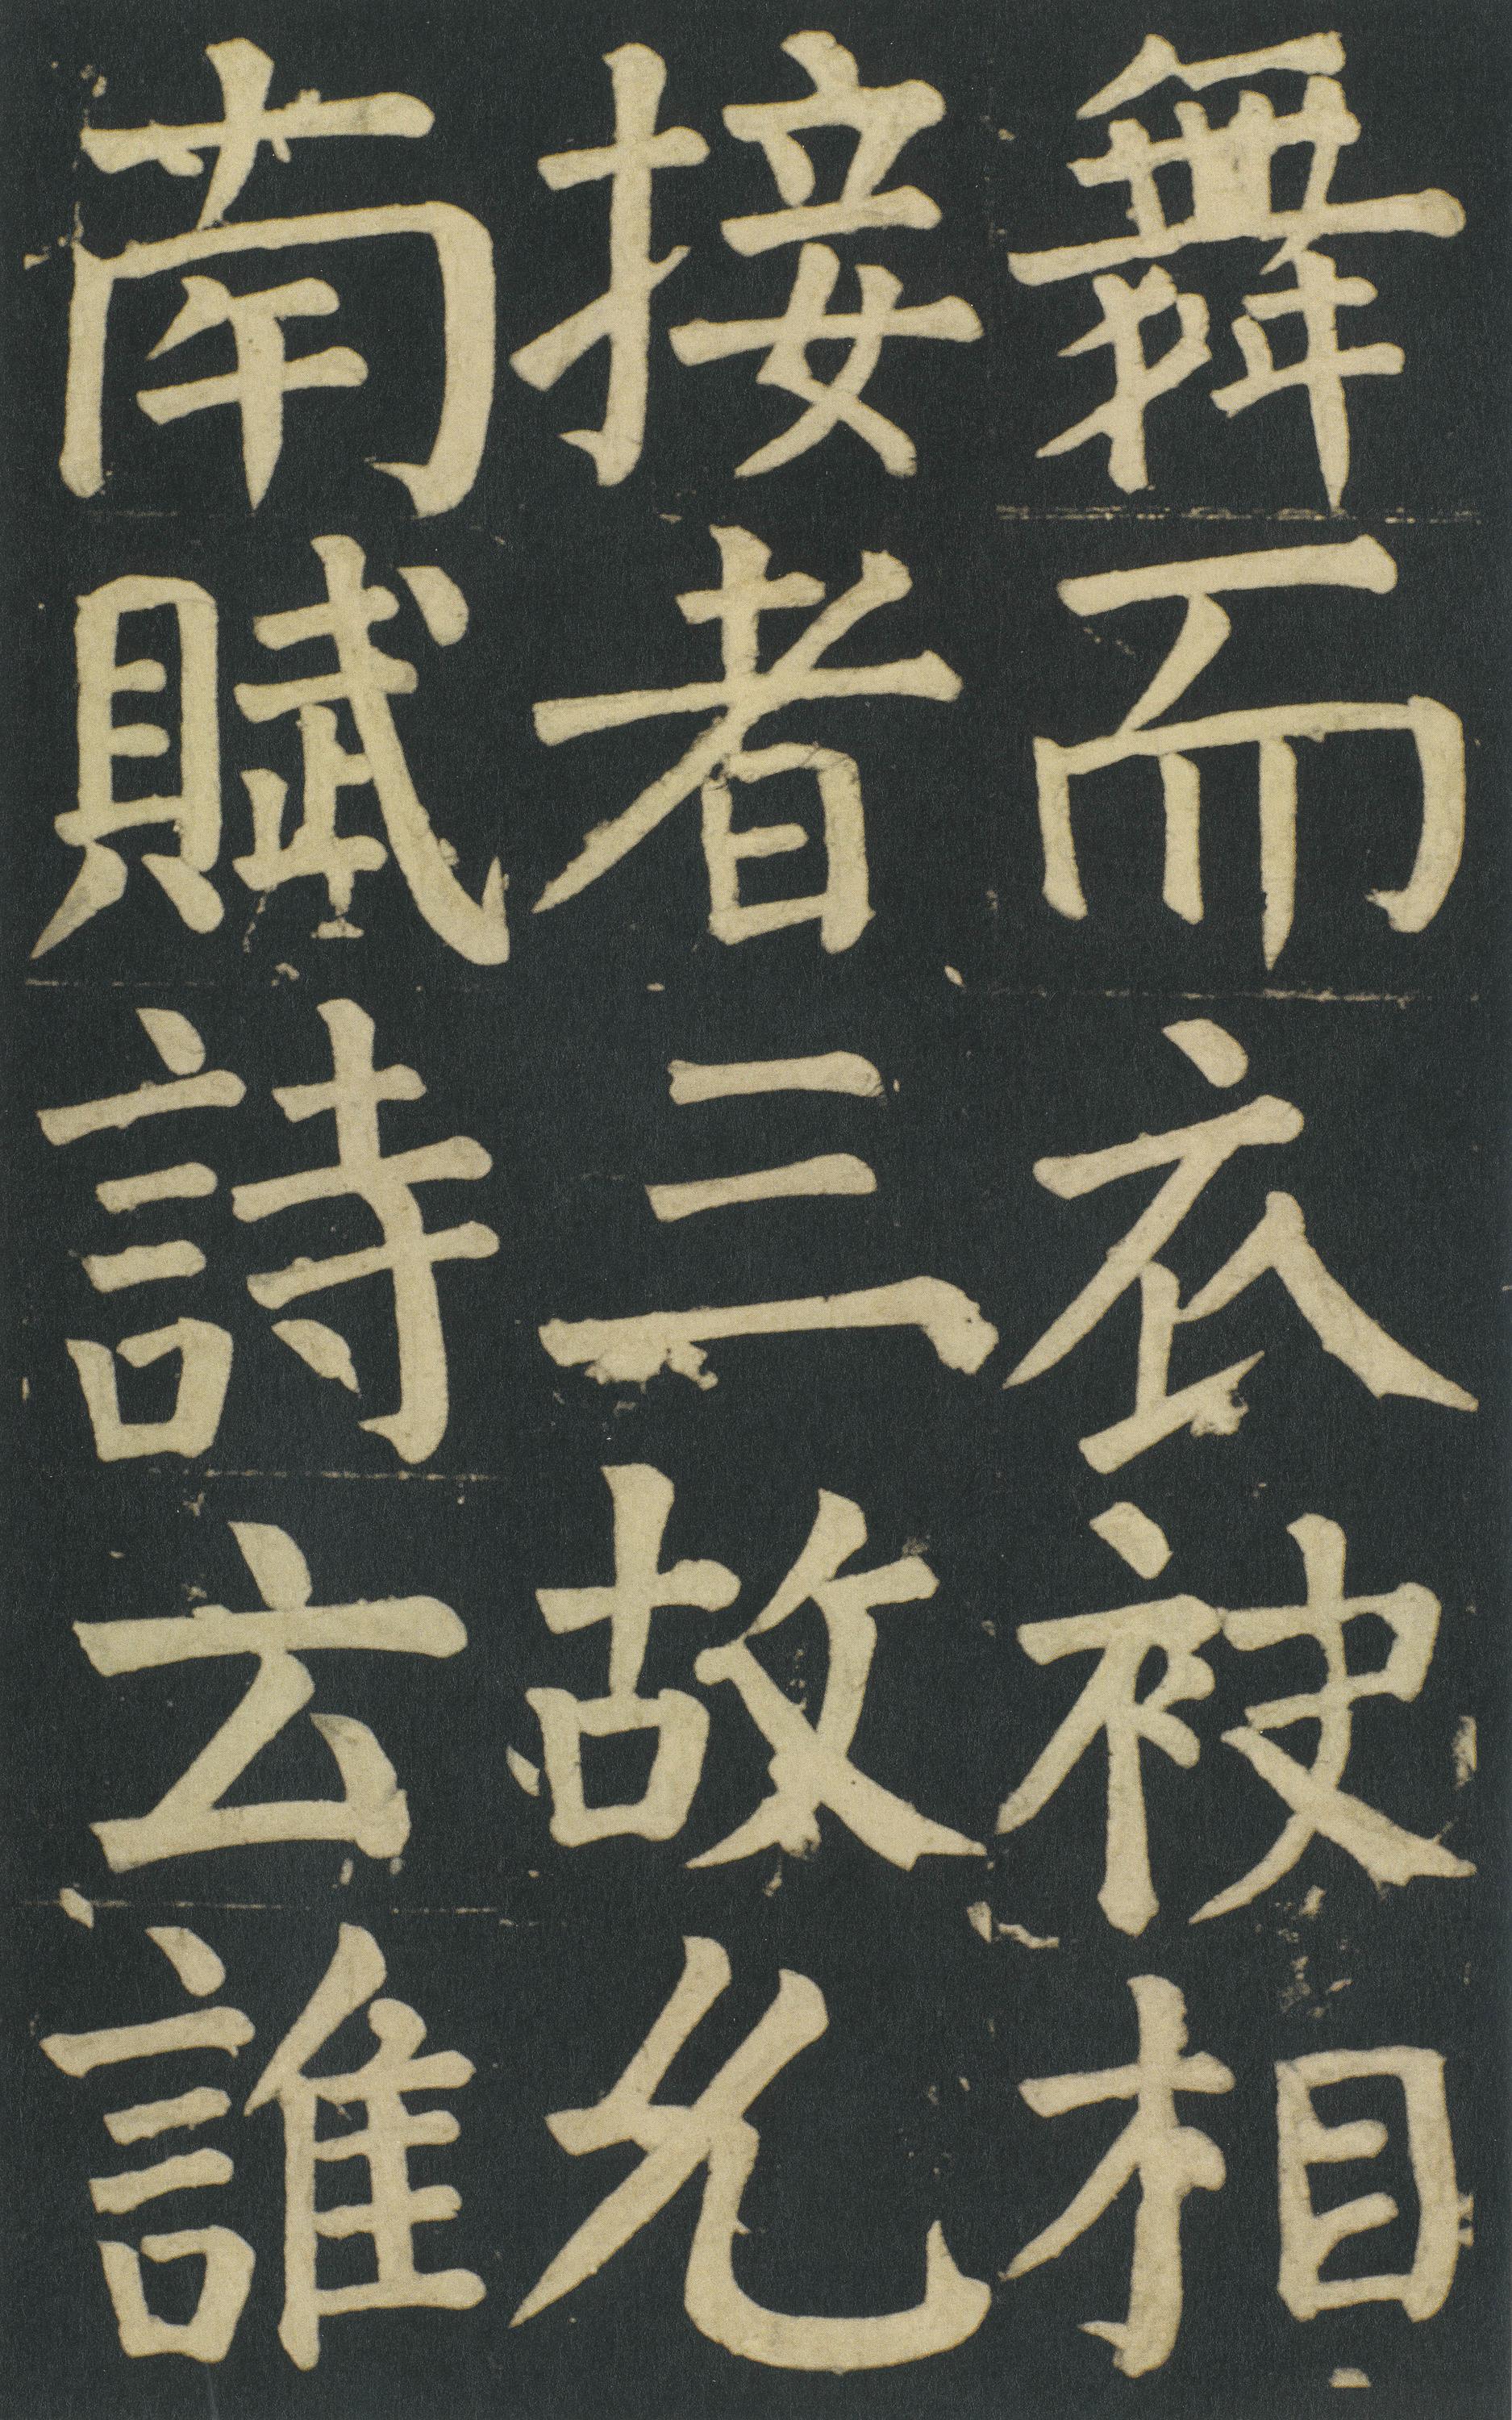 舞而衣袂相
接者三故允
南賦詩云誰